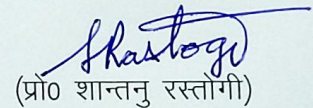 SRastogi
(प्रो0 शान्तनु रस्तोगी)